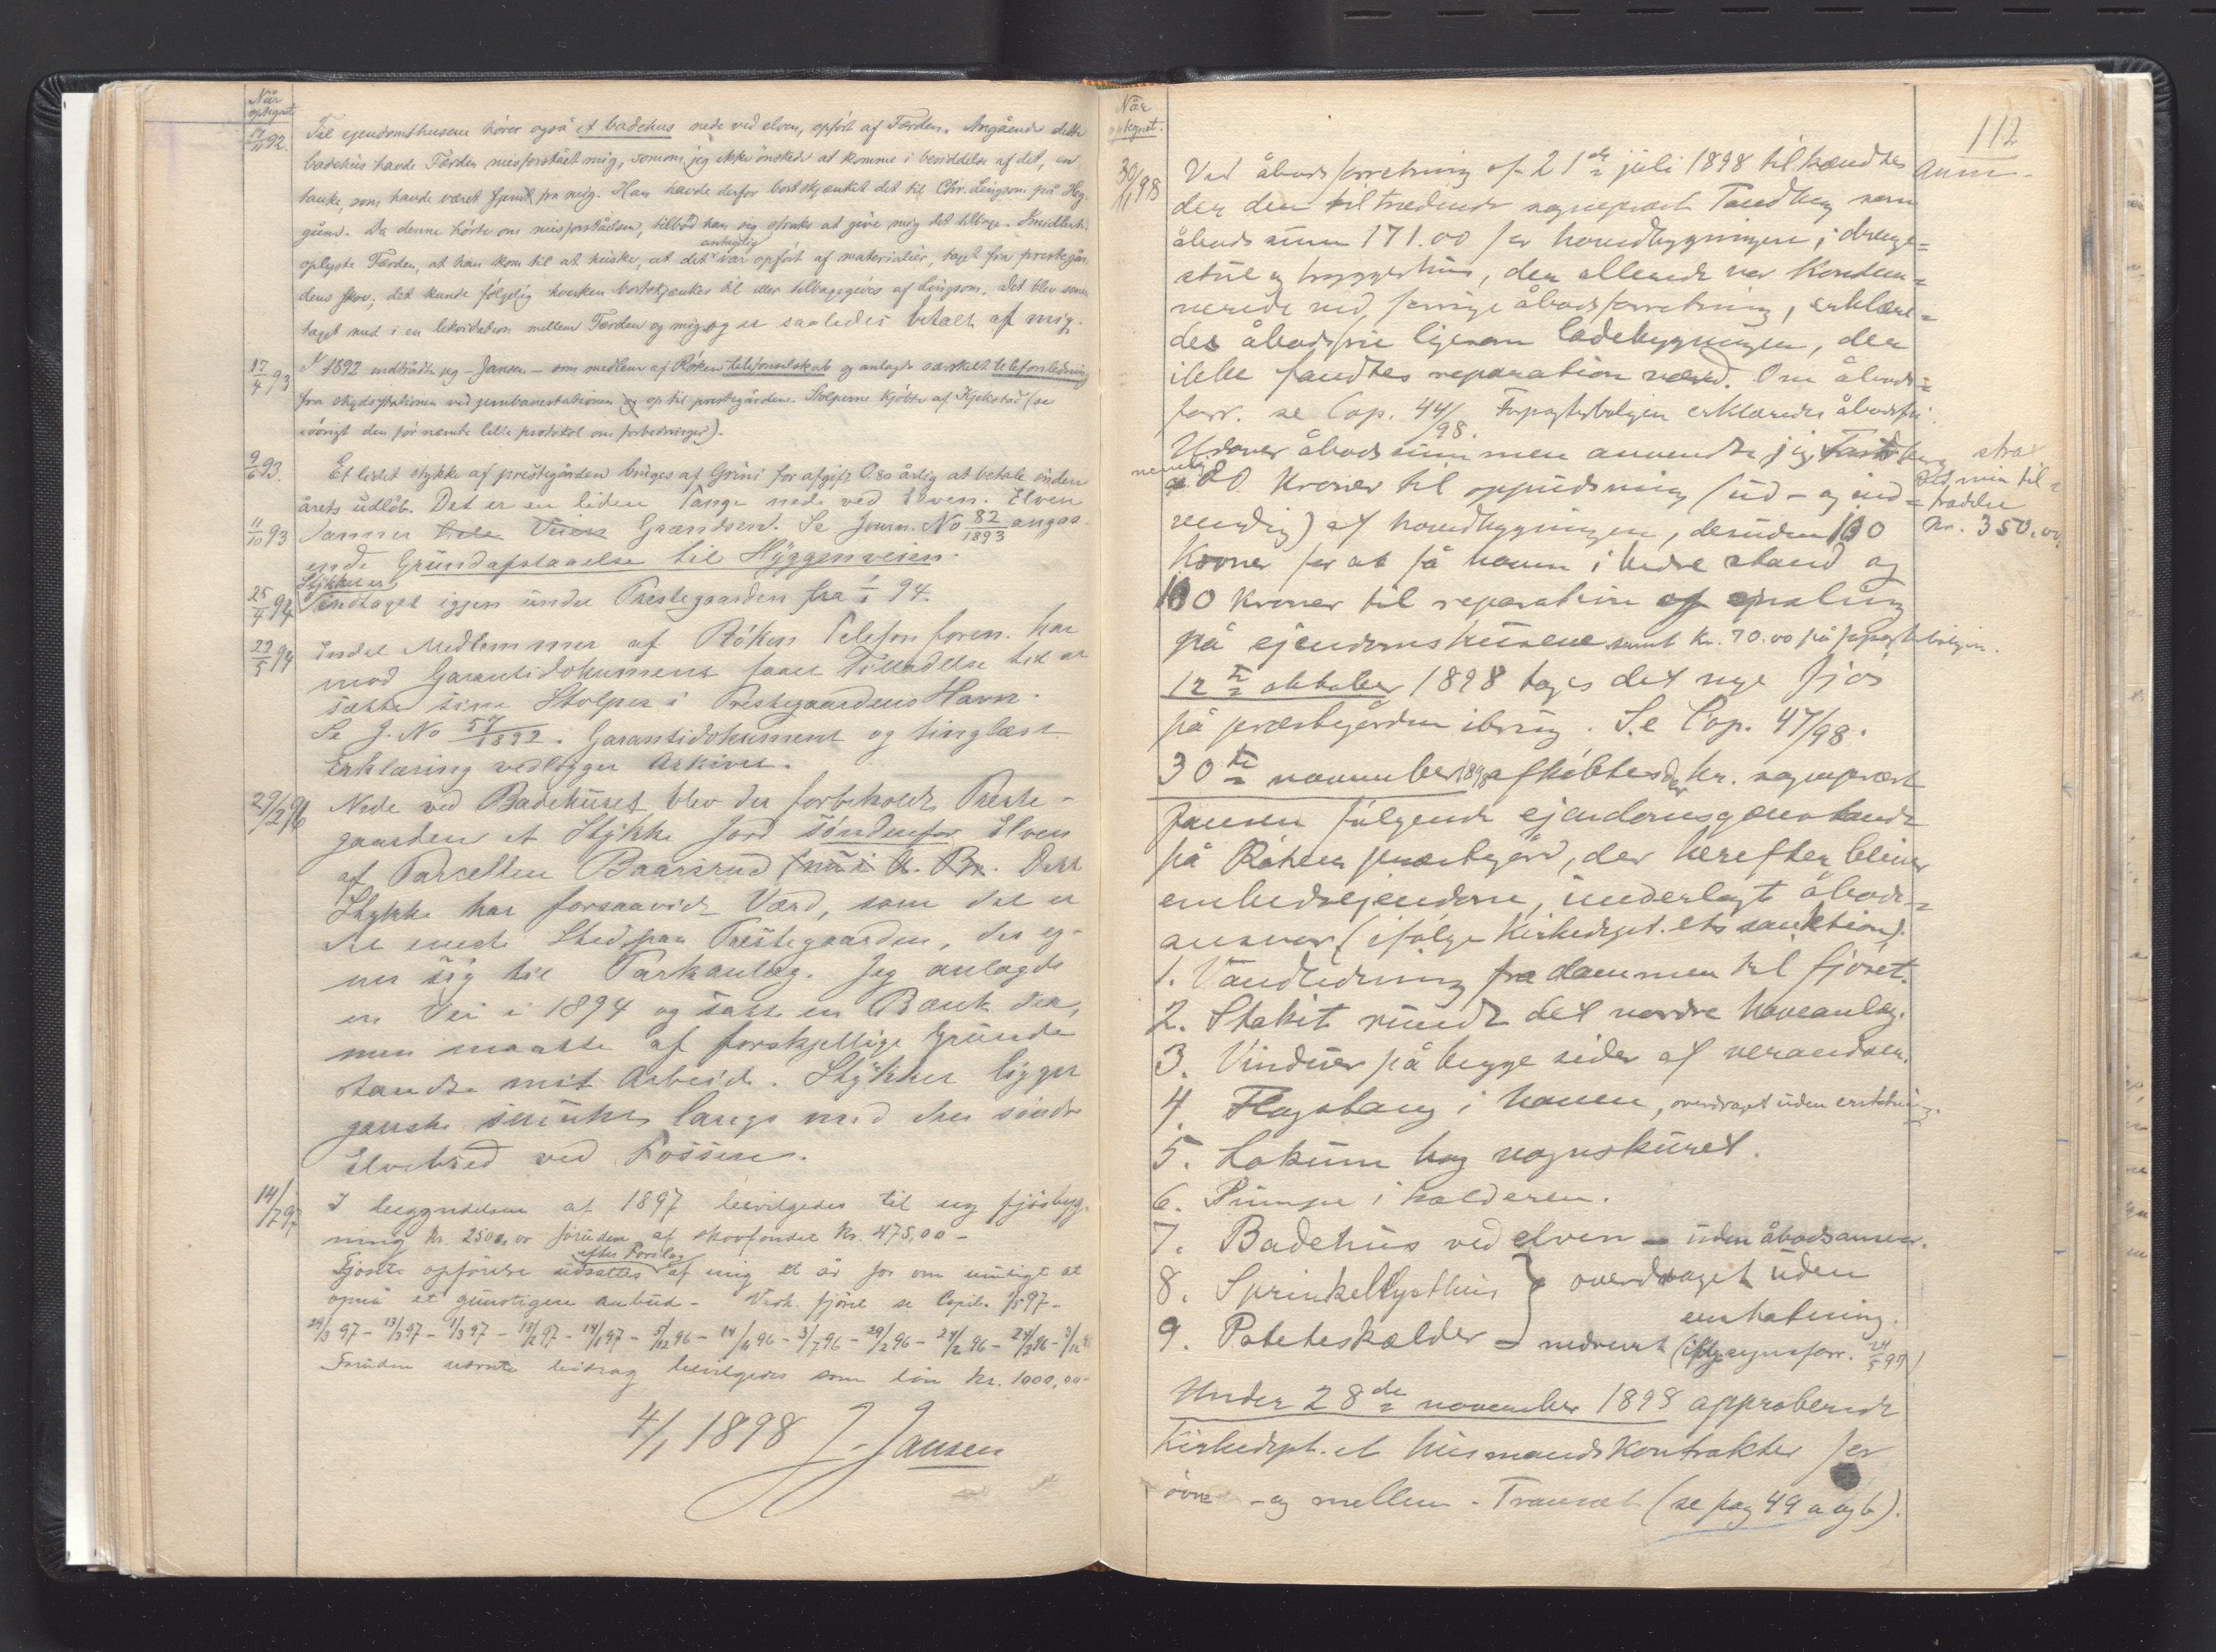 Når
optegnet
17/11 92. Til ejendomshusene hører også et badehus nede ved elven, opført af Færden. Angående dette
badehus havde Færden misforstået mig, som om jeg ikke ønskede at komme i besiddelse af det, en
tanke, som havde været fjernt fra mig. Han havde derfor bortskjænket det til Chr. Lingsom på Hyg-
gum. Da denne hørte om misforståelsen, tilbød han sig straks at give mig det tilbage. Imidlertid
oplyste Færden, at han kom til at huske, at det antagelig var opført af materialier, taget fra prestegår-
dens skov; det kunde følgelig hverken bortskjænkes til eller tilbagegives af Lingsom. Det blev senere
taget med i en likvidation mellem Færden og mig og er saaledes betalt af mig.
17/4 93 I 1892 indtrådte jeg - Jansen - som medlem af Røken telefonselskab og anlagde særskilt telefonledning
fra skydsstationen ved jernbanestationen og op til prestegården. Stolperne kjøbte af Kjekstad (se
iøvrigt den før nævnte lille protokol om forbedringer).
9/6 93. Et lidet stykke af prestegården bruges af Grini for afgift 0.80 årlig at betale inden
årets udløb. Det er en liden Tange nede ved Elven. Elven
11/10 93 danner hele Veien Grændsen. Se Journ. No 82/1893 angaa-
ende Grundafstaaelse til Hyggenveien.
25/4 94 Stykket er indtaget igjen under Prestegaarden fra 1/1 94.
22/5 94 Endel Medlemmer af Røken Telefonforen. har
mod Garantidokument faaet Tilladelse til at
sætte sine Stolper i Prestegaardens Havn.
Se J. No 57/1892. Garantidokument og tinglæst
Erklæring vedlægger Arkivet.
29/2 96 Nede ved Badehuset blev der forbeholdt Preste-
gaarden et Stykke Jord søndenfor Elven
af Parcellen Baarsrud. Dette
Stykke har forsaavidt Værd, som det er
det eneste Sted paa Prestegaarden, der eg-
ner sig til Parkanlæg. Jeg anlagde
en Vei i 1894 og satte en Bænk der,
men maatte af forskjellige Grunde
standse mit Arbeide. Stykket ligger
ganske smukt langs med den søndre
Elvebred ved Fossen.
14/7 97 I begyndelsen af 1897 bevilgedes til ny fjøsbyg-
ning Kr. 2500,00 foruden af skovfondet Kr. 475,00 -
Fjøsets opførelse udsattes efter Forslag af mig et år for om muligt at
opnå et gunstigere anbud - Vedk. fjøset se Copib. 1/5 97 -
29/3 97 - 13/3 97 - 1/3 97 - 18/2 97 - 14/1 97 - 5/12 96 - 14/11 96 - 3/7 96 - 29/2 96 - 24/2 96 -
Foruden nævnte bidrag bevilgedes som lån Kr. 1000,00 -
4/1 1898 J. Jansen
112
Når
optegnet.
Anm.
30/11 98 Ved åbodsforretning af 21de juli 1898 tilkændtes
der den tiltrædende sogneprest Tandberg som
åbodssum 171.00 for hovedbygningen; drenge-
stue og bryggerhus, der allerede var kondem-
nerede ved forrige åbodsforretning, erklære-
des åbodsfrie ligesom ladebygningen, der
ikke fandtes reparation værd. Om åbods-
forr. se Cop. 44/98. Forpagterboligen erklæredes åbodsfri.
Udover åbodssummen anvendte jeg, Tandberg, strax
ved min til-
trædelse
Kr. 350.00.
nemlig 00 Kroner til oppudsning (ud- og ind-
vendig) af hovedbygningen, desuden 100
Kroner for at få haven i bedre stand og
100 kroner til reparation og maling
på ejendomshusene samt Kr. 70.00 på forpagterboligen.
12te oktober 1898 toges det nye fjøs
på præstegården i brug. Se Cop. 47/98.
30te november 1898 afkjøbtes der hr. sogneprest
Jansen følgende ejendomsgjenstande
på Røken præstegård, der herefter bliver
embedsejendom, underlagt åbods-
ansvar (ifølge Kirkedept.ets sanktion).
1. Vandledning fra dammen til fjøset.
2. Stakit rundt det nordre haveanlæg.
3. Vinduer på begge sider af verandaen.
4. Flagstang i haven, overdraget uden erstatning.
5. Lokum bag vognskuret.
6. Pumpe i kælderen.
7. Badehus ved elven - uden åbodsansvar.
8. Sprinkellysthus } overdraget uden
erstatning.
9. Poteteskælder - nedrevet (ifølge synsforr. 24/5 99)
Under 28de november 1898 approberede
Kirkedept.et husmandskontrakter for
øvre - og mellem - Transet (se pag 49 a og b).